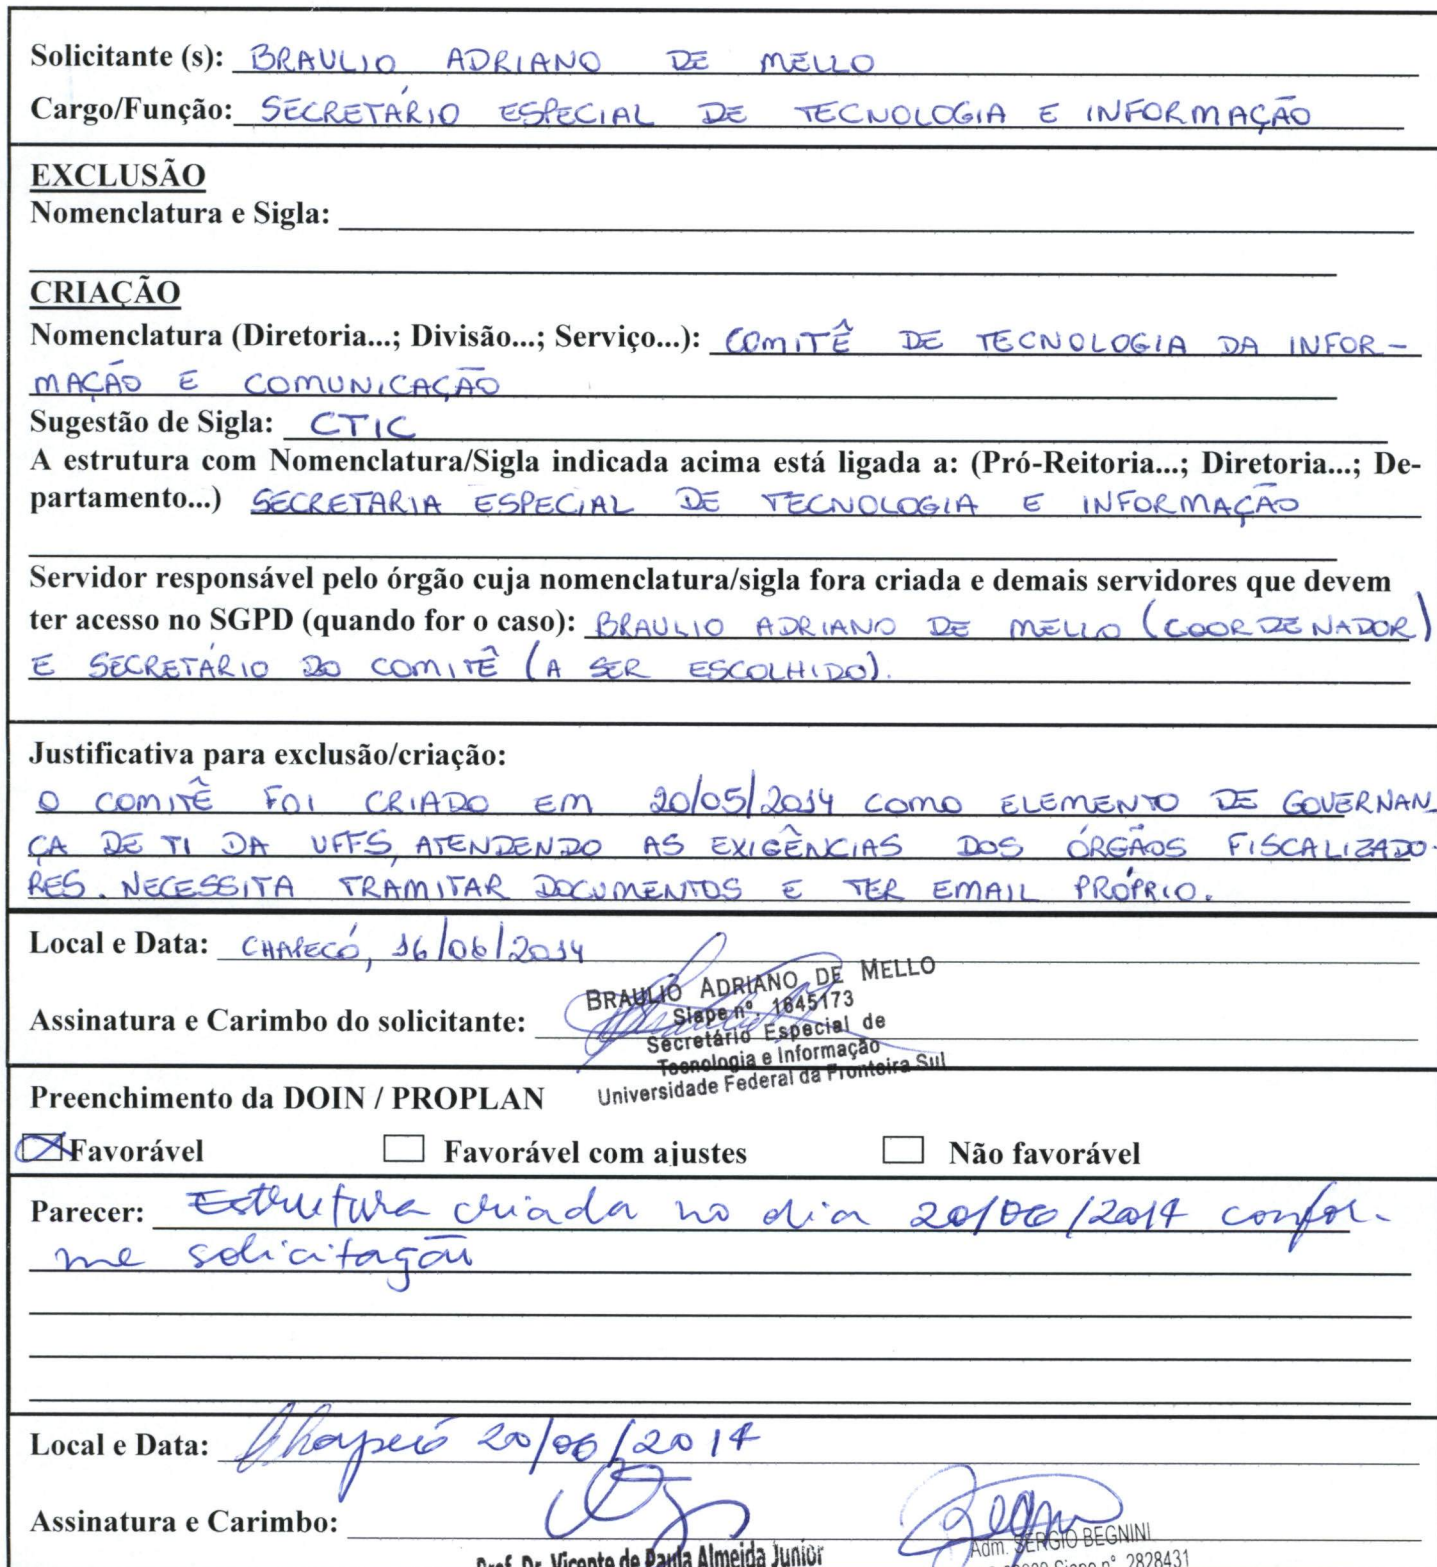 Solicitante (s): BRAULIO ADRIANO DE MELLO
Cargo/Função: SECRETÁRIO ESPECIAL DE TECNOLOGIA E INFORMAÇÃO
EXCLUSÃO
Nomenclatura e Sigla:
CRIAÇÃO
Nomenclatura (Diretoria...; Divisão...; Serviço...): COMITÊ DE TECNOLOGIA DA INFOR-
MAÇÃO E COMUNICAÇÃO
Sugestão de Sigla: CTIC
A estrutura com Nomenclatura/Sigla indicada acima está ligada a: (Pró-Reitoria...; Diretoria...; De-
partamento...) SECRETARIA ESPECIAL DE TECNOLOGIA E INFORMAÇÃO
Servidor responsável pelo órgão cuja nomenclatura/sigla fora criada e demais servidores que devem
ter acesso no SGPD (quando for o caso): BRAULIO ADRIANO DE MELLO (COORDENADOR)
E SECRETÁRIO DO COMITÊ (A SER ESCOLHIDO).
Justificativa para exclusão/criação:
O COMITÊ FOI CRIADO EM 20/05/2014 COMO ELEMENTO DE GOVERNAN-
ÇA DE TI DA UFFS, ATENDENDO AS EXIGÊNCIAS DOS ÓRGÃOS FISCALIZADO-
RES. NECESSITA TRAMITAR DOCUMENTOS E TER EMAIL PRÓPRIO.
Local e Data: CHAPECÓ, 16/06/2014
Assinatura e Carimbo do solicitante:
BRAULIO ADRIANO DE MELLO
Siape nº. 1645173
Secretário Especial de
Tecnologia e Informação
Universidade Federal da Fronteira Sul
Preenchimento da DOIN / PROPLAN
Favorável Favorável com ajustes Não favorável
Parecer: Estrutura criada no dia 20/06/2014 confor-
me solicitação
Local e Data: Chapecó 20/06/2014
Assinatura e Carimbo:
Prof. Dr. Vicente de Paula Almeida Junior
Adm. SERGIO BEGNINI
Siape nº 2828431